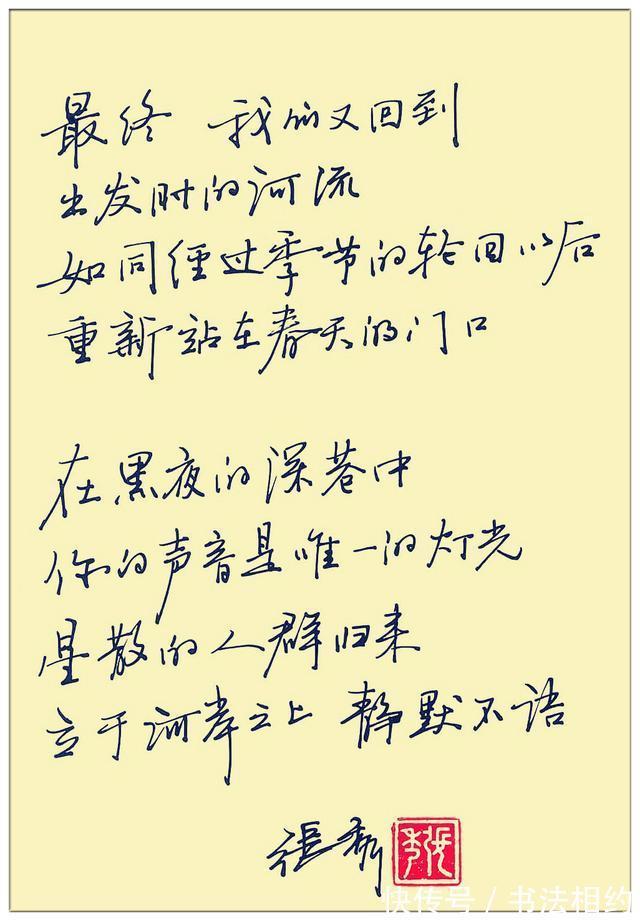 最终 我们又回到
出发时的河流
如同经过季节的轮回以后
重新站在春天的门口
在黑夜的深巷中
你的声音是唯一的灯光
星散的人群归来
立于河岸之上 静默不语
張秀
快传号 / 书法相约